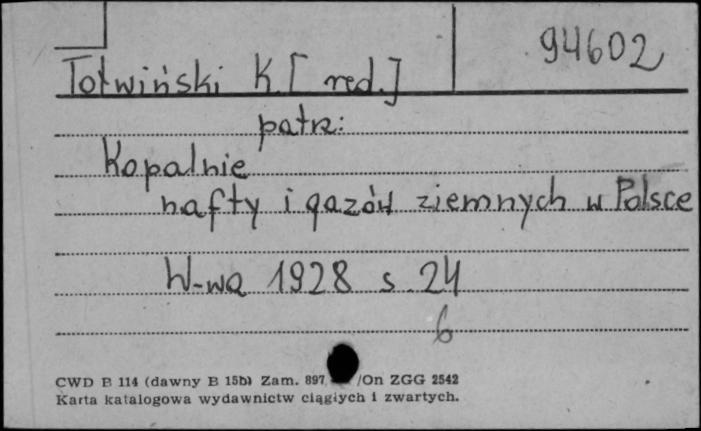 94602
Tołwiński K. [red.]
patrz:
Kopalnie
nafty i gazów ziemnych w Polsce
W-wa 1928 s. 24
6
CWD B 114 (dawny B 15b) Zam. 897 /On ZGG 2542
Karta katalogowa wydawnictw ciągłych i zwartych.